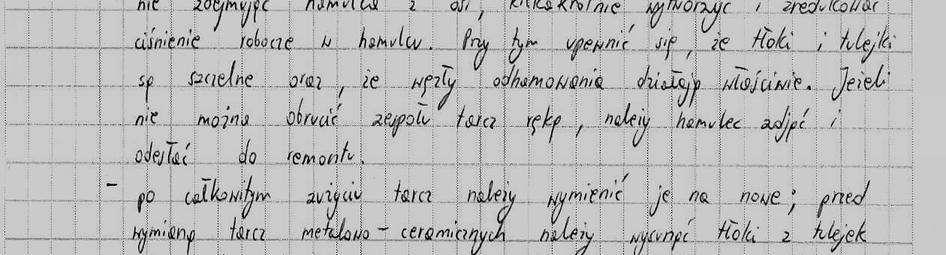 nie zdejmując hamulca z osi, kilkakrotnie wytworzyć i zredukować
ciśnienie robocze w hamulcu. Przy tym upewnić się, że tłoki i tulejki
są szczelne oraz, że węzły odhamowania działają właściwie. Jeżeli
nie można obrucić zespołu tarcz ręką, należy hamulec zdjąć i
odesłać do remontu.
- po całkowitym zużyciu tarcz należy wymienić je na nowe; przed
wymianą tarcz metalowo-ceramicznych należy wysunąć tłoki z tulejek